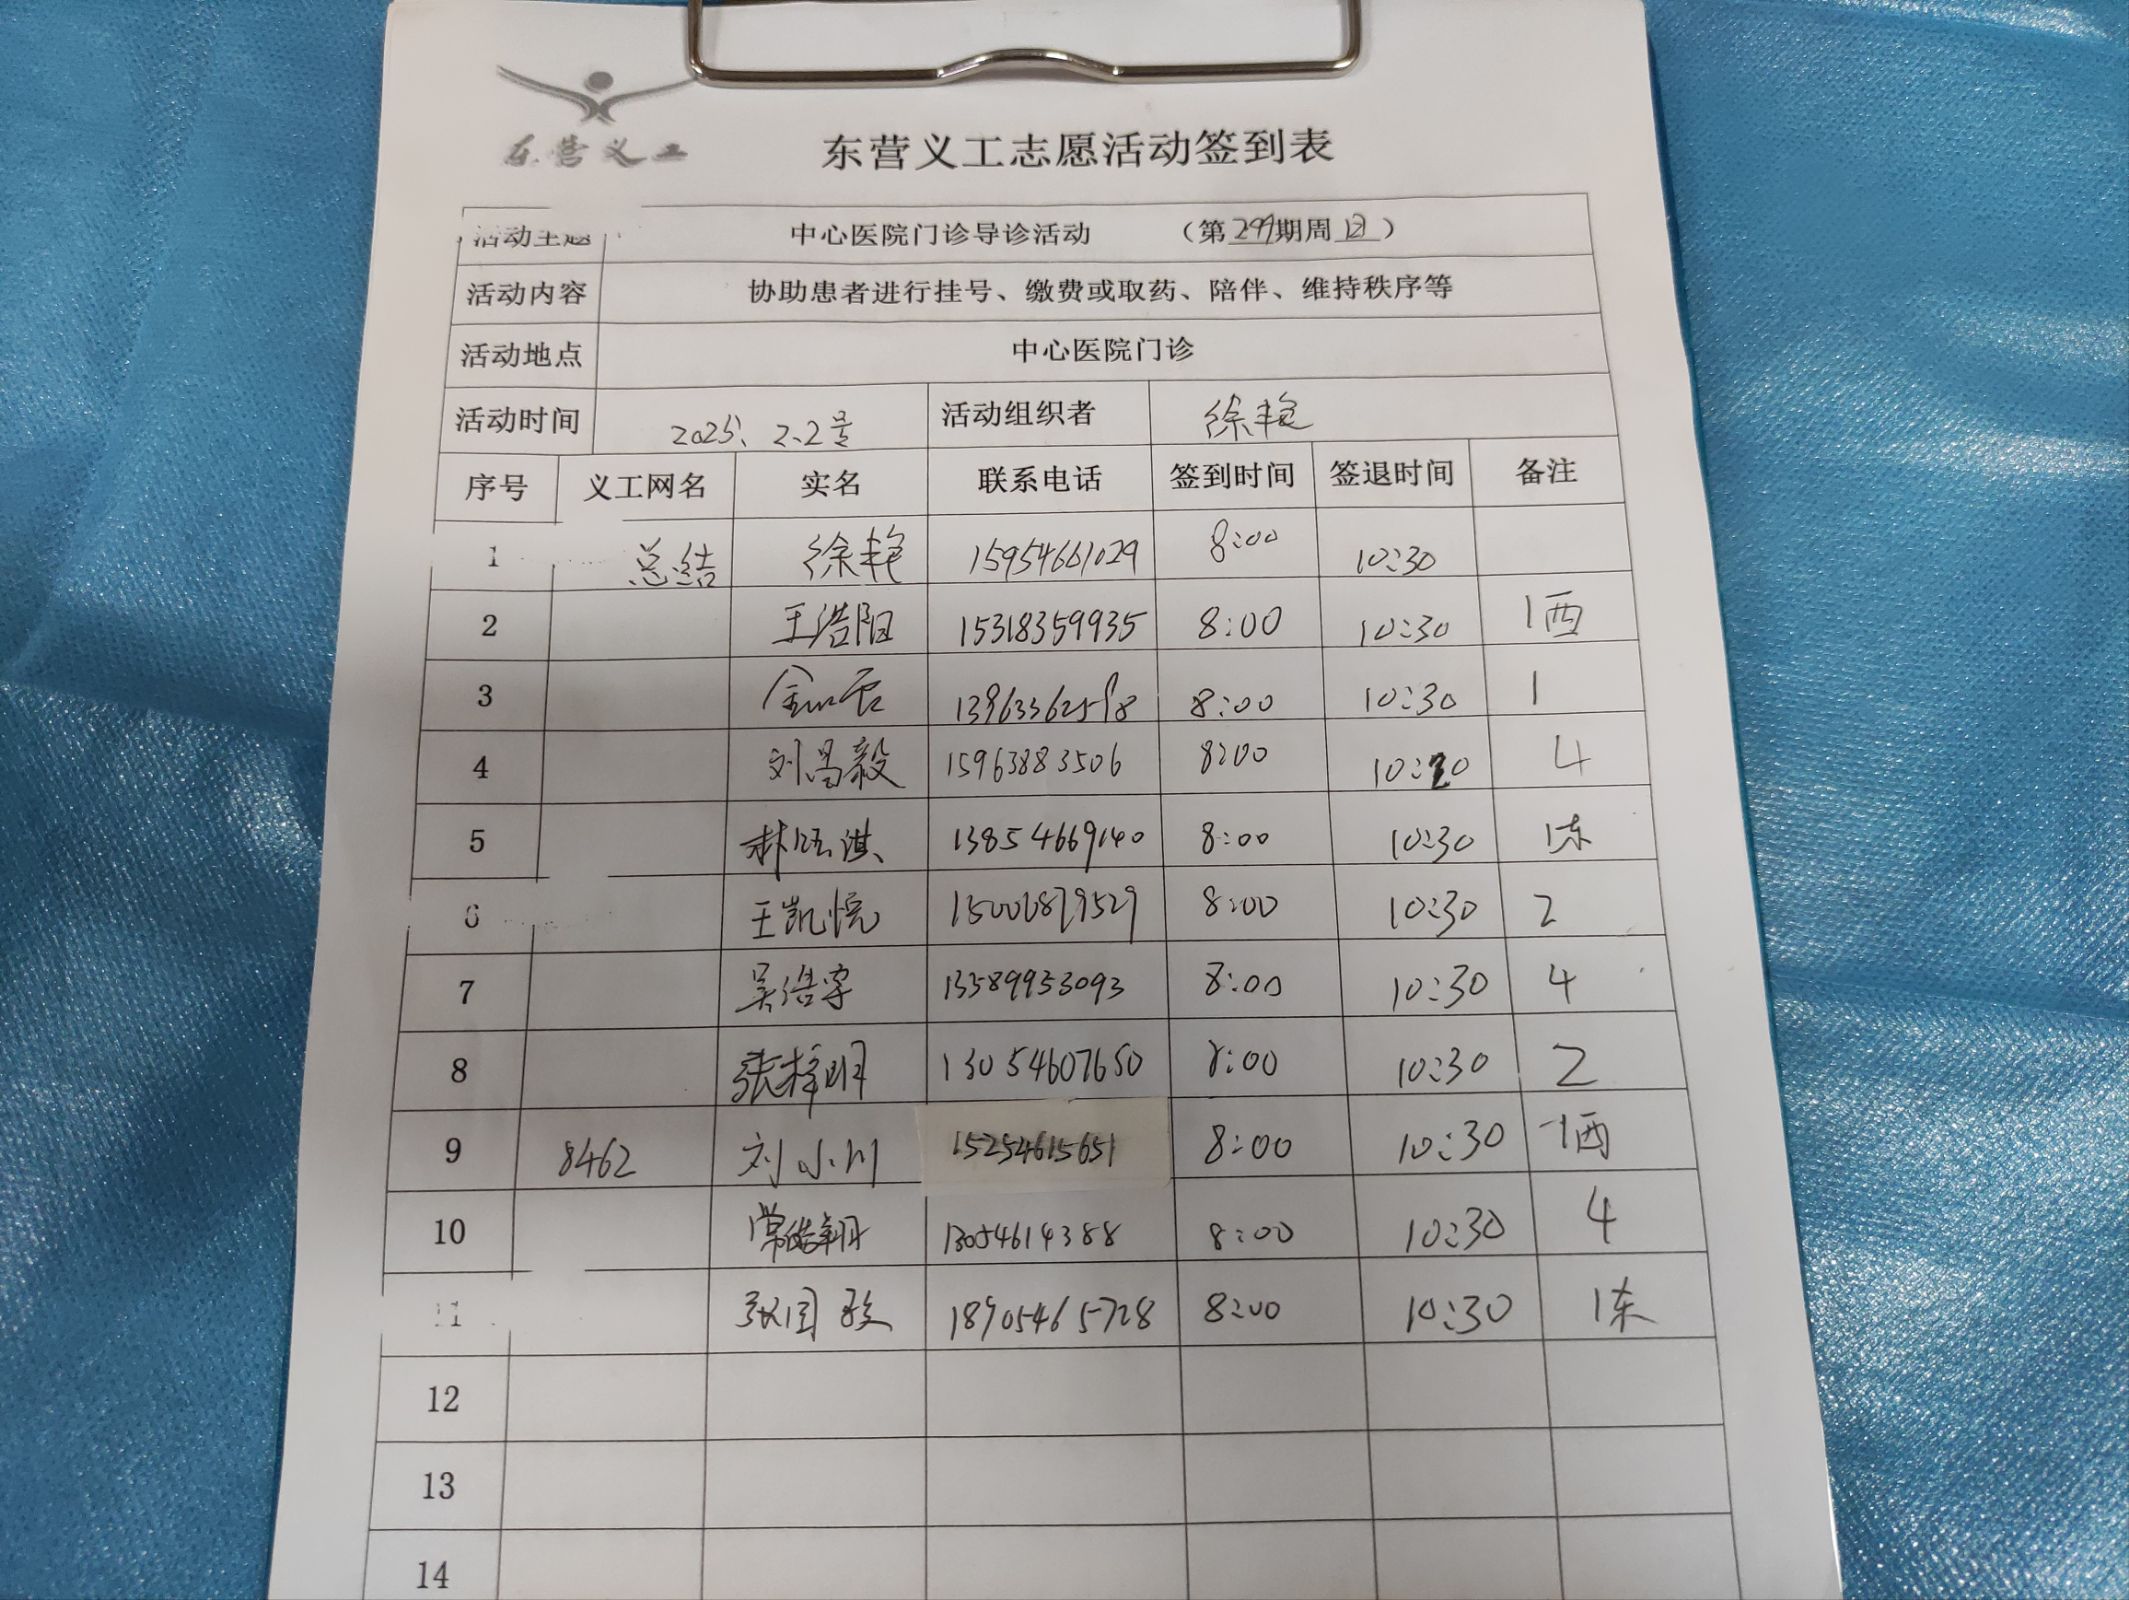 东营义工
东营义工志愿活动签到表
活动主题 中心医院门诊导诊活动 （第299期周日）
活动内容 协助患者进行挂号、缴费或取药、陪伴、维持秩序等
活动地点 中心医院门诊
活动时间 2025、2、2号 活动组织者 徐艳
序号 义工网名 实名 联系电话 签到时间 签退时间 备注
1 总结 徐艳 15954661029 8:00 10:30
2 王浩阳 15318359935 8:00 10:30 1西
3 8:00 10:30 1
4 刘昌毅 15963883506 8:00 10:20 4
5 13854669140 8:00 10:30 1东
6 王凯悦 15006879529 8:00 10:30 2
7 吴浩宇 13589953093 8:00 10:30 4
8 张梓明 13054607650 8:00 10:30 2
9 8462 刘小川 15254615651 8:00 10:30 1西
10 常皓翔 13054614388 8:00 10:30 4
11 18905465728 8:00 10:30 1东
12
13
14